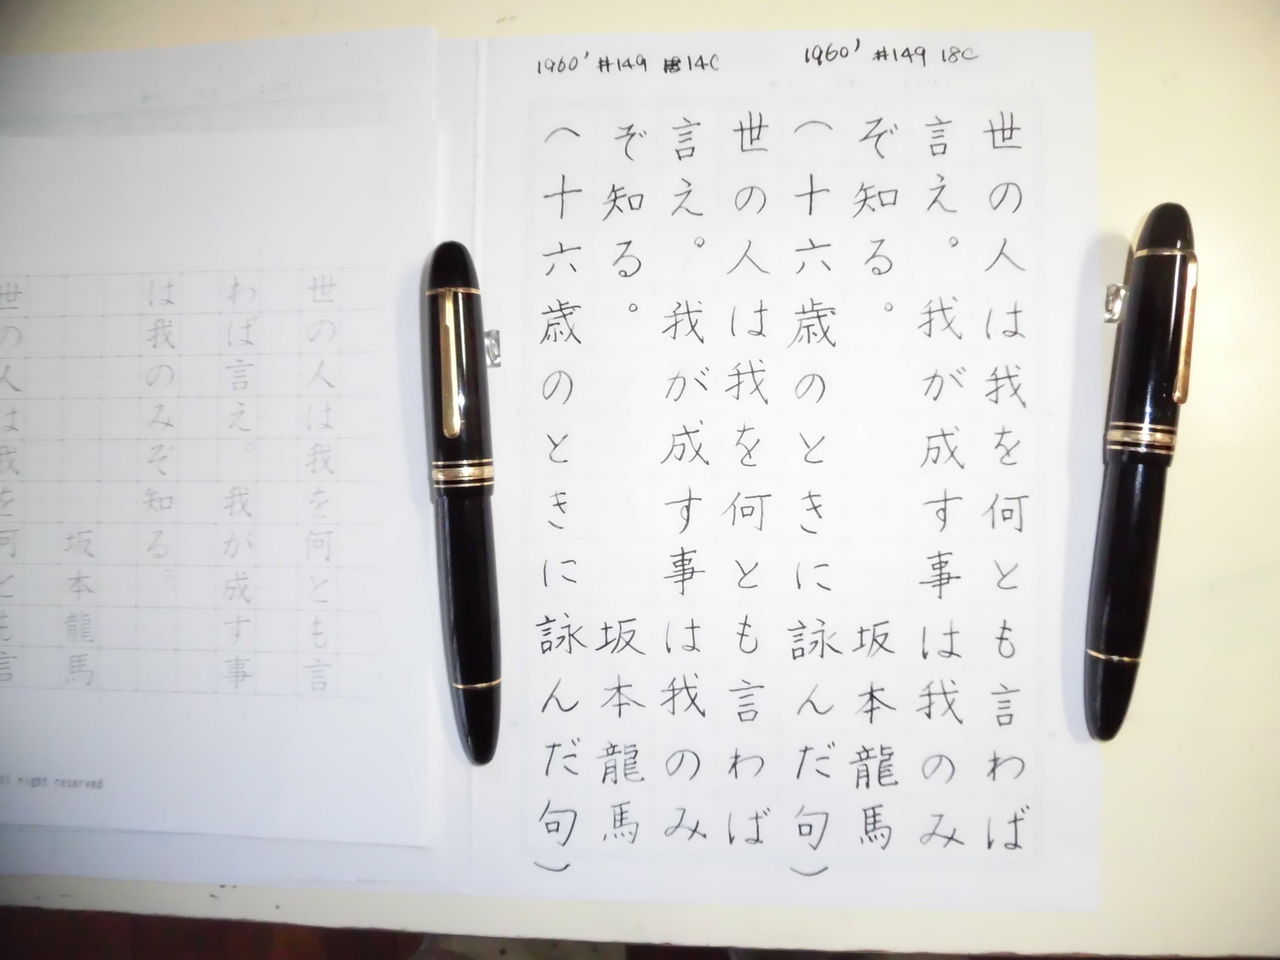 1960' #149 14C
1960' #149 18C
世の人は我を何とも言わば
言え。我が成す事は我のみ
ぞ知る。 坂本龍馬
(十六歳のときに詠んだ句)
世の人は我を何とも言わば
言え。我が成す事は我のみ
ぞ知る。 坂本龍馬
(十六歳のときに詠んだ句)
世の人は我を何とも言
わば言え。我が成す事
は我のみぞ知る。
坂本龍馬
世の人は我を何とも言
all right reserved